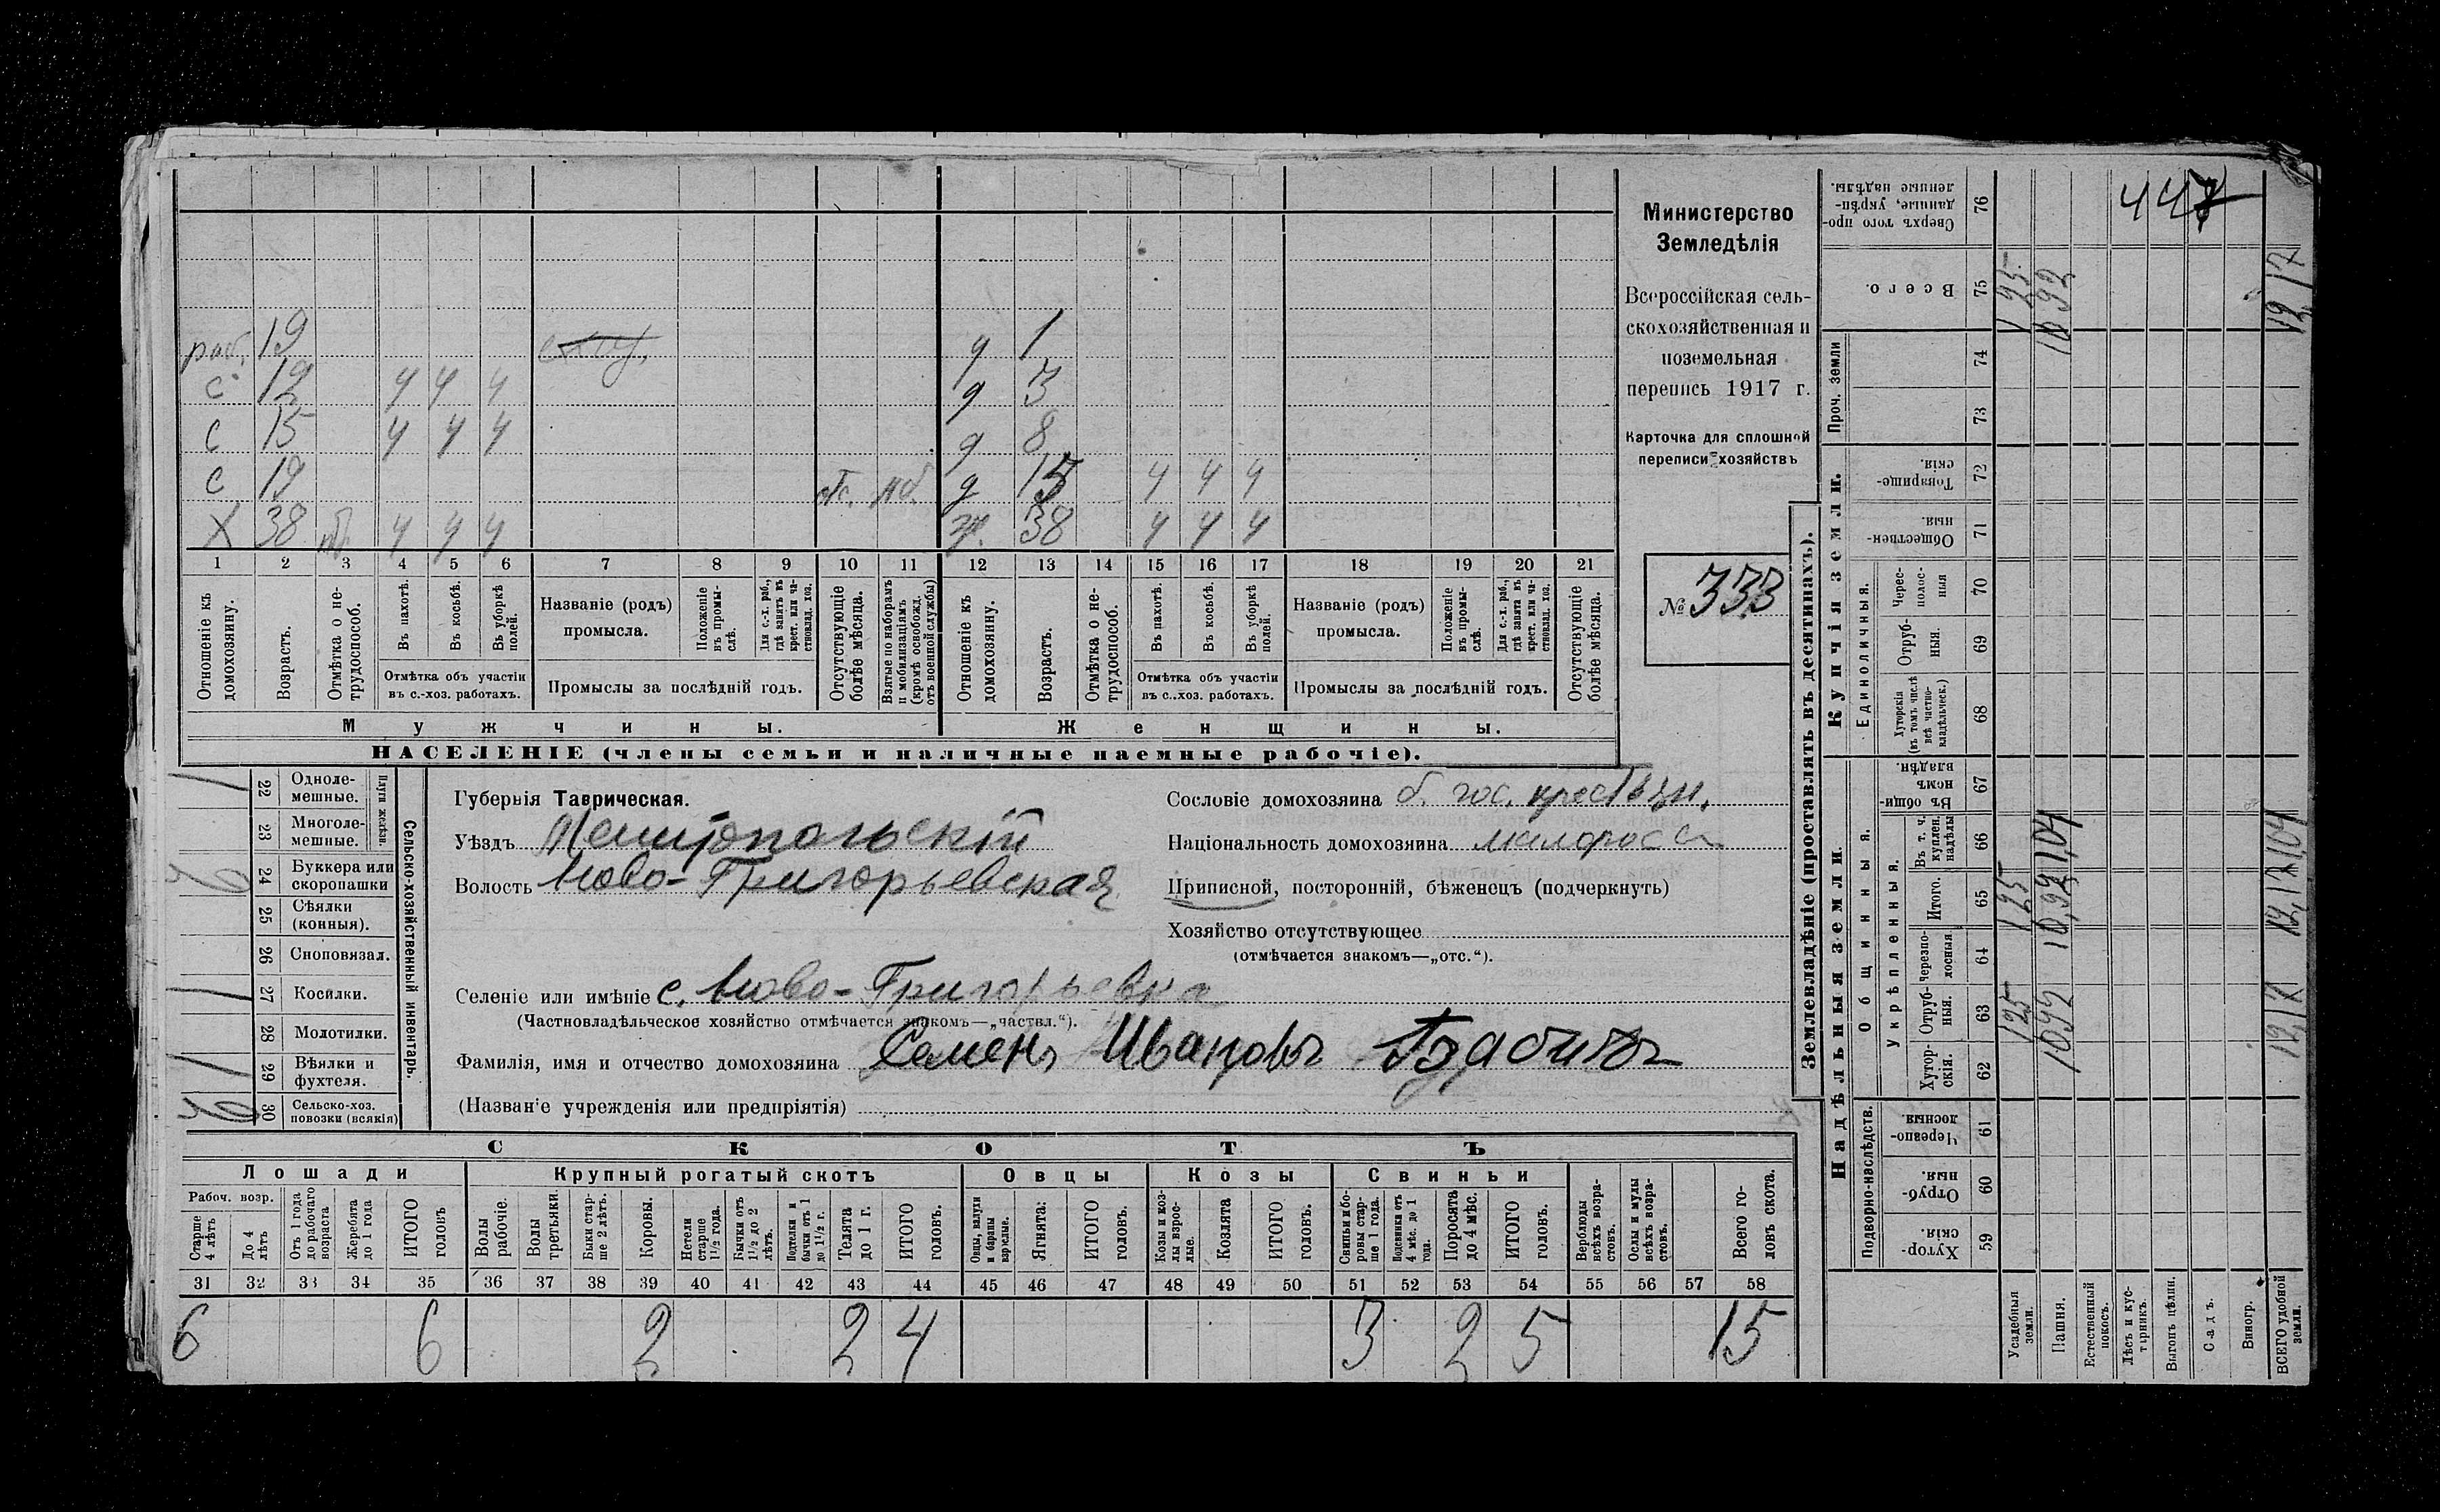 раб. 19 д 1
с 12 ч ч ч д 3
с 15 ч ч ч д 8
с 19 отс. мб. д 15 ч ч ч
Х 38 ч ч ч ж. 38 ч ч ч
1 2 3 4 5 6 7 8 9 10 11 12 13 14 15 16 17 18 19 20 21
Отношеніе къ домохозяину.
Возрастъ.
Отмѣтка о не-
трудоспособ.
Въ пахотѣ.
Въ косьбѣ.
Въ уборкѣ полей.
Отмѣтка объ участіи
въ с.-хоз. работахъ.
Названіе (родъ)
промысла.
Положеніе въ промы-
слѣ.
Для с.-х. раб., гдѣ занятъ въ крест. или ча-
стновлад. хоз.
Промыслы за послѣдній годъ.
Отсутствующіе болѣе мѣсяца.
Взятые по наборамъ и мобилизаціямъ (кромѣ освобожд. отъ военной службы)
Отношеніе къ домохозяину.
Возрастъ.
Отмѣтка о не-
трудоспособ.
Въ пахотѣ.
Въ косьбѣ.
Въ уборкѣ полей.
Отмѣтка объ участіи
въ с.-хоз. работахъ.
Названіе (родъ)
промысла.
Положеніе въ промы-
слѣ.
Для с.-х. раб., гдѣ занята въ крест. или ча-
стновлад. хоз.
Промыслы за послѣдній годъ.
Отсутствующіе болѣе мѣсяца.
Мужчины. Женщины.
НАСЕЛЕНІЕ (члены семьи и наличные наемные рабочіе).
Министерство
Земледѣлія
Всероссійская сель-
скохозяйственная и
поземельная
перепись 1917 г.
Карточка для сплошной
переписи хозяйствъ
№ 333
Сельско-хозяйственный инвентарь.
22 Одноле-
мешные. 1
23 Многоле-
мешные.
24 Буккера или
скоропашки
25 Сѣялки
(конныя).
26 Сноповязал.
27 Косилки. 1
28 Молотилки.
29 Вѣялки и
фухтеля. 1
30 Сельско-хоз.
повозки (всякія)
Губернія Таврическая.
Уѣздъ Мелитопольскій
Волость Ново-Григорьевская
Селеніе или имѣніе с. Ново-Григорьевка
(Частновладѣльческое хозяйство отмѣчается знакомъ—„частвл.“).
Фамилія, имя и отчество домохозяина Семенъ Ивановъ
(Названіе учрежденія или предпріятія)
Сословіе домохозяина б. гос. крестьян.
Національность домохозяина малоросс
Приписной, посторонній, бѣженецъ (подчеркнуть)
Хозяйство отсутствующее
(отмѣчается знакомъ—„отс.“).
СКОТЪ
Лошади Крупный рогатый скотъ Овцы Козы Свиньи
Рабоч. возр.
Старше 4 лѣтъ
До 4 лѣтъ
Отъ 1 года до рабочаго возраста
Жеребята до 1 года
ИТОГО головъ
Волы рабочіе.
Волы третьяки.
Быки стар-
ше 2 лѣтъ.
Коровы.
Нетели старше 1½ года.
Бычки отъ 1½ до 2 лѣтъ.
Подтелки и бычки отъ 1 до 1½ г.
Телята до 1 г.
ИТОГО головъ.
Овцы, валухи и бараны взрослые.
Ягнята.
ИТОГО головъ.
Козы и коз-
лы взрос-
лые.
Козлята
ИТОГО головъ.
Свиньи и бо-
ровы стар-
ше 1 года.
Подсвинки отъ 4 мѣс. до 1 года.
Поросята до 4 мѣс.
ИТОГО головъ.
Верблюды всѣхъ возра-
стовъ.
Ослы и мулы всѣхъ возра-
стовъ.
Всего го-
ловъ скота.
31 32 33 34 35 36 37 38 39 40 41 42 43 44 45 46 47 48 49 50 51 52 53 54 55 56 57 58
6 6 2 2 4 3 2 5 15
Землевладѣніе (проставлять въ десятинахъ).
Надѣльныя земли. Купчія земли. Проч. земли
Подворно-наслѣдств. Общинныя. Укрѣпленныя. Единоличныя.
Хутор-
скія. 59
Отруб-
ныя. 60
Черезпо-
лосныя. 61
Хутор-
скія. 62
Отруб-
ныя. 63
Черезпо-
лосныя 64
Итого. 65
Въ т. ч. куплен. надѣлы 66
Въ общин-
номъ владѣн. 67
Хуторскія (въ томъ числѣ всѣ частно-
владѣльческ.) 68
Отруб-
ныя. 69
Черес-
полос-
ныя 70
Обществен-
ныя. 71
Товарище-
скія. 72
73
74
Всего. 75
Сверхъ того про-
данные, укрѣп-
ленные надѣлы. 76
Усадебныя земли. 125 125 125
Пашня. 1092 10,92 1,04 1092
Естественный покосъ.
Лѣсъ и кус-
тарникъ.
Выгонъ цѣлин.
Садъ.
Виногр.
ВСЕГО удобной земли. 12,17 12,17 1,04 12,17
447